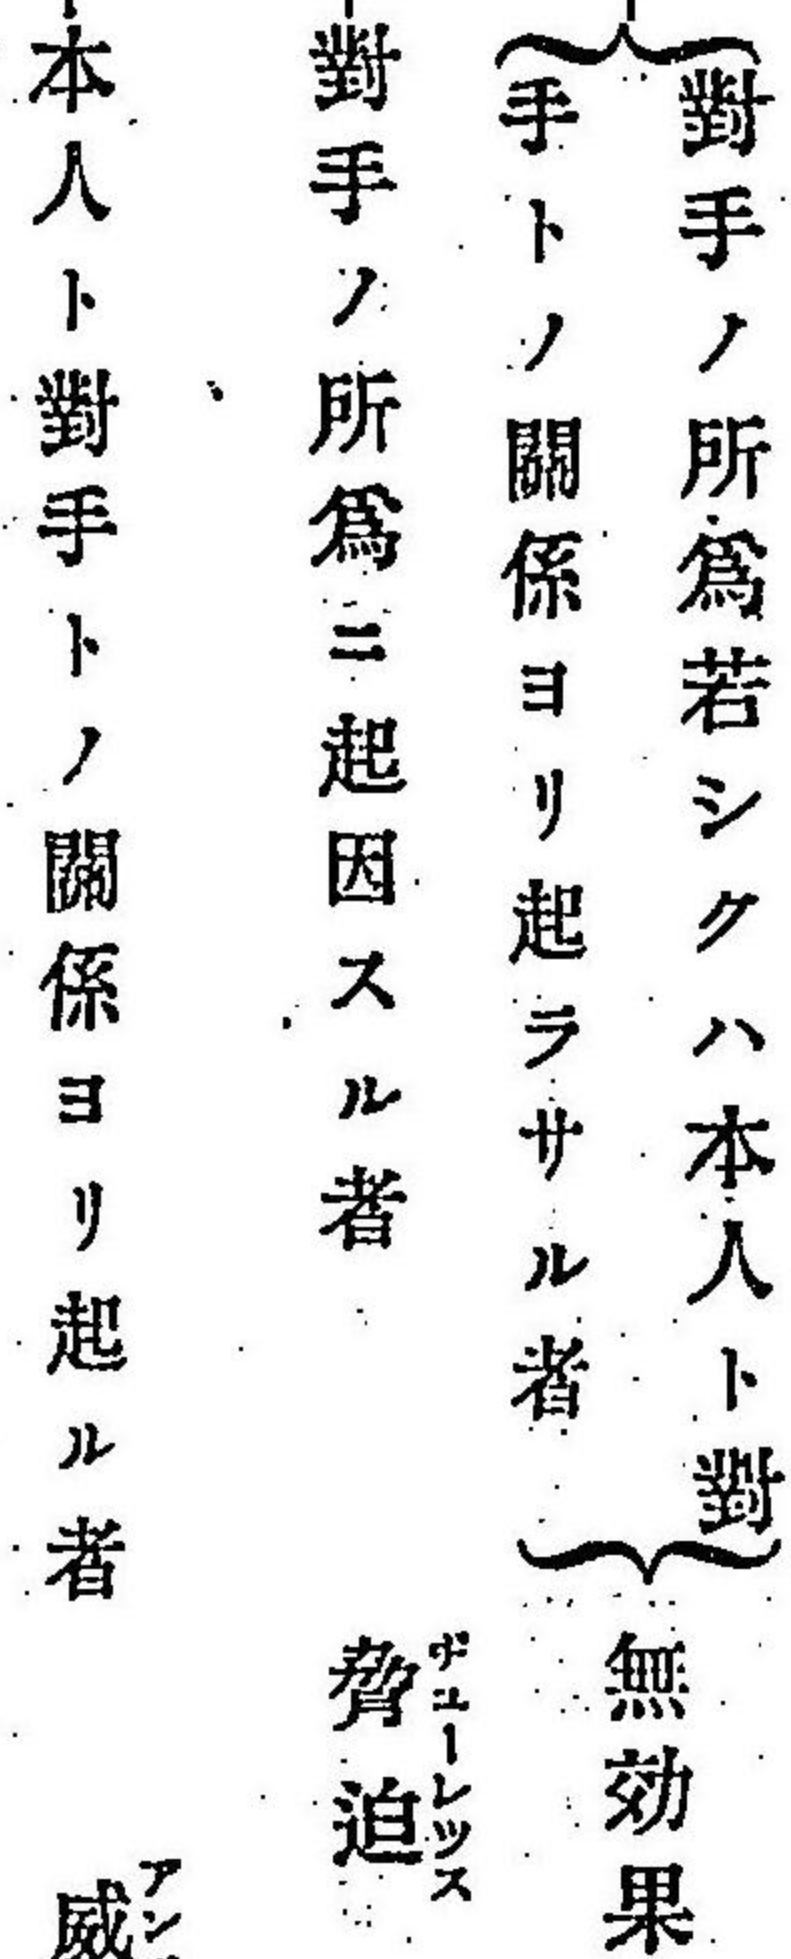 對手ノ所爲若シクハ本人ト對
手トノ關係ヨリ起ラサル者
無効果
對手ノ所爲ニ起因スル者
脅迫
デユーレツス
本人ト對手トノ關係ヨリ起ル者
威
アン